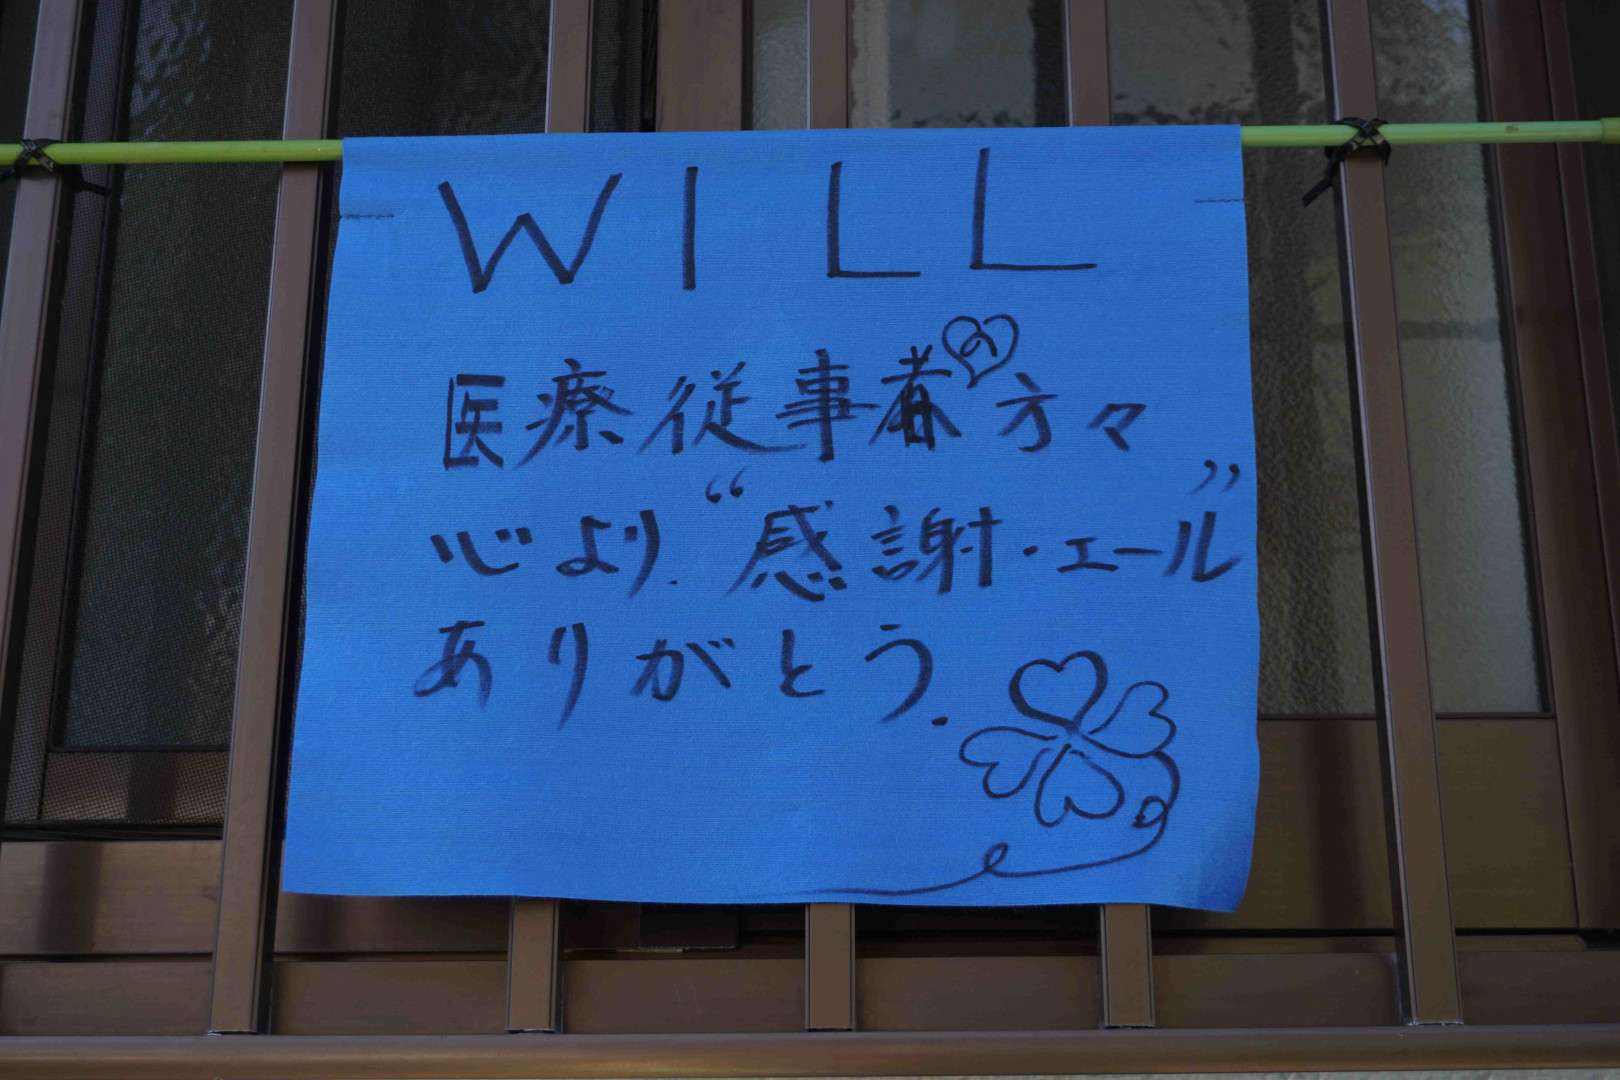 WILL
医療従事者の方々
心より.“感謝・エール”
ありがとう.